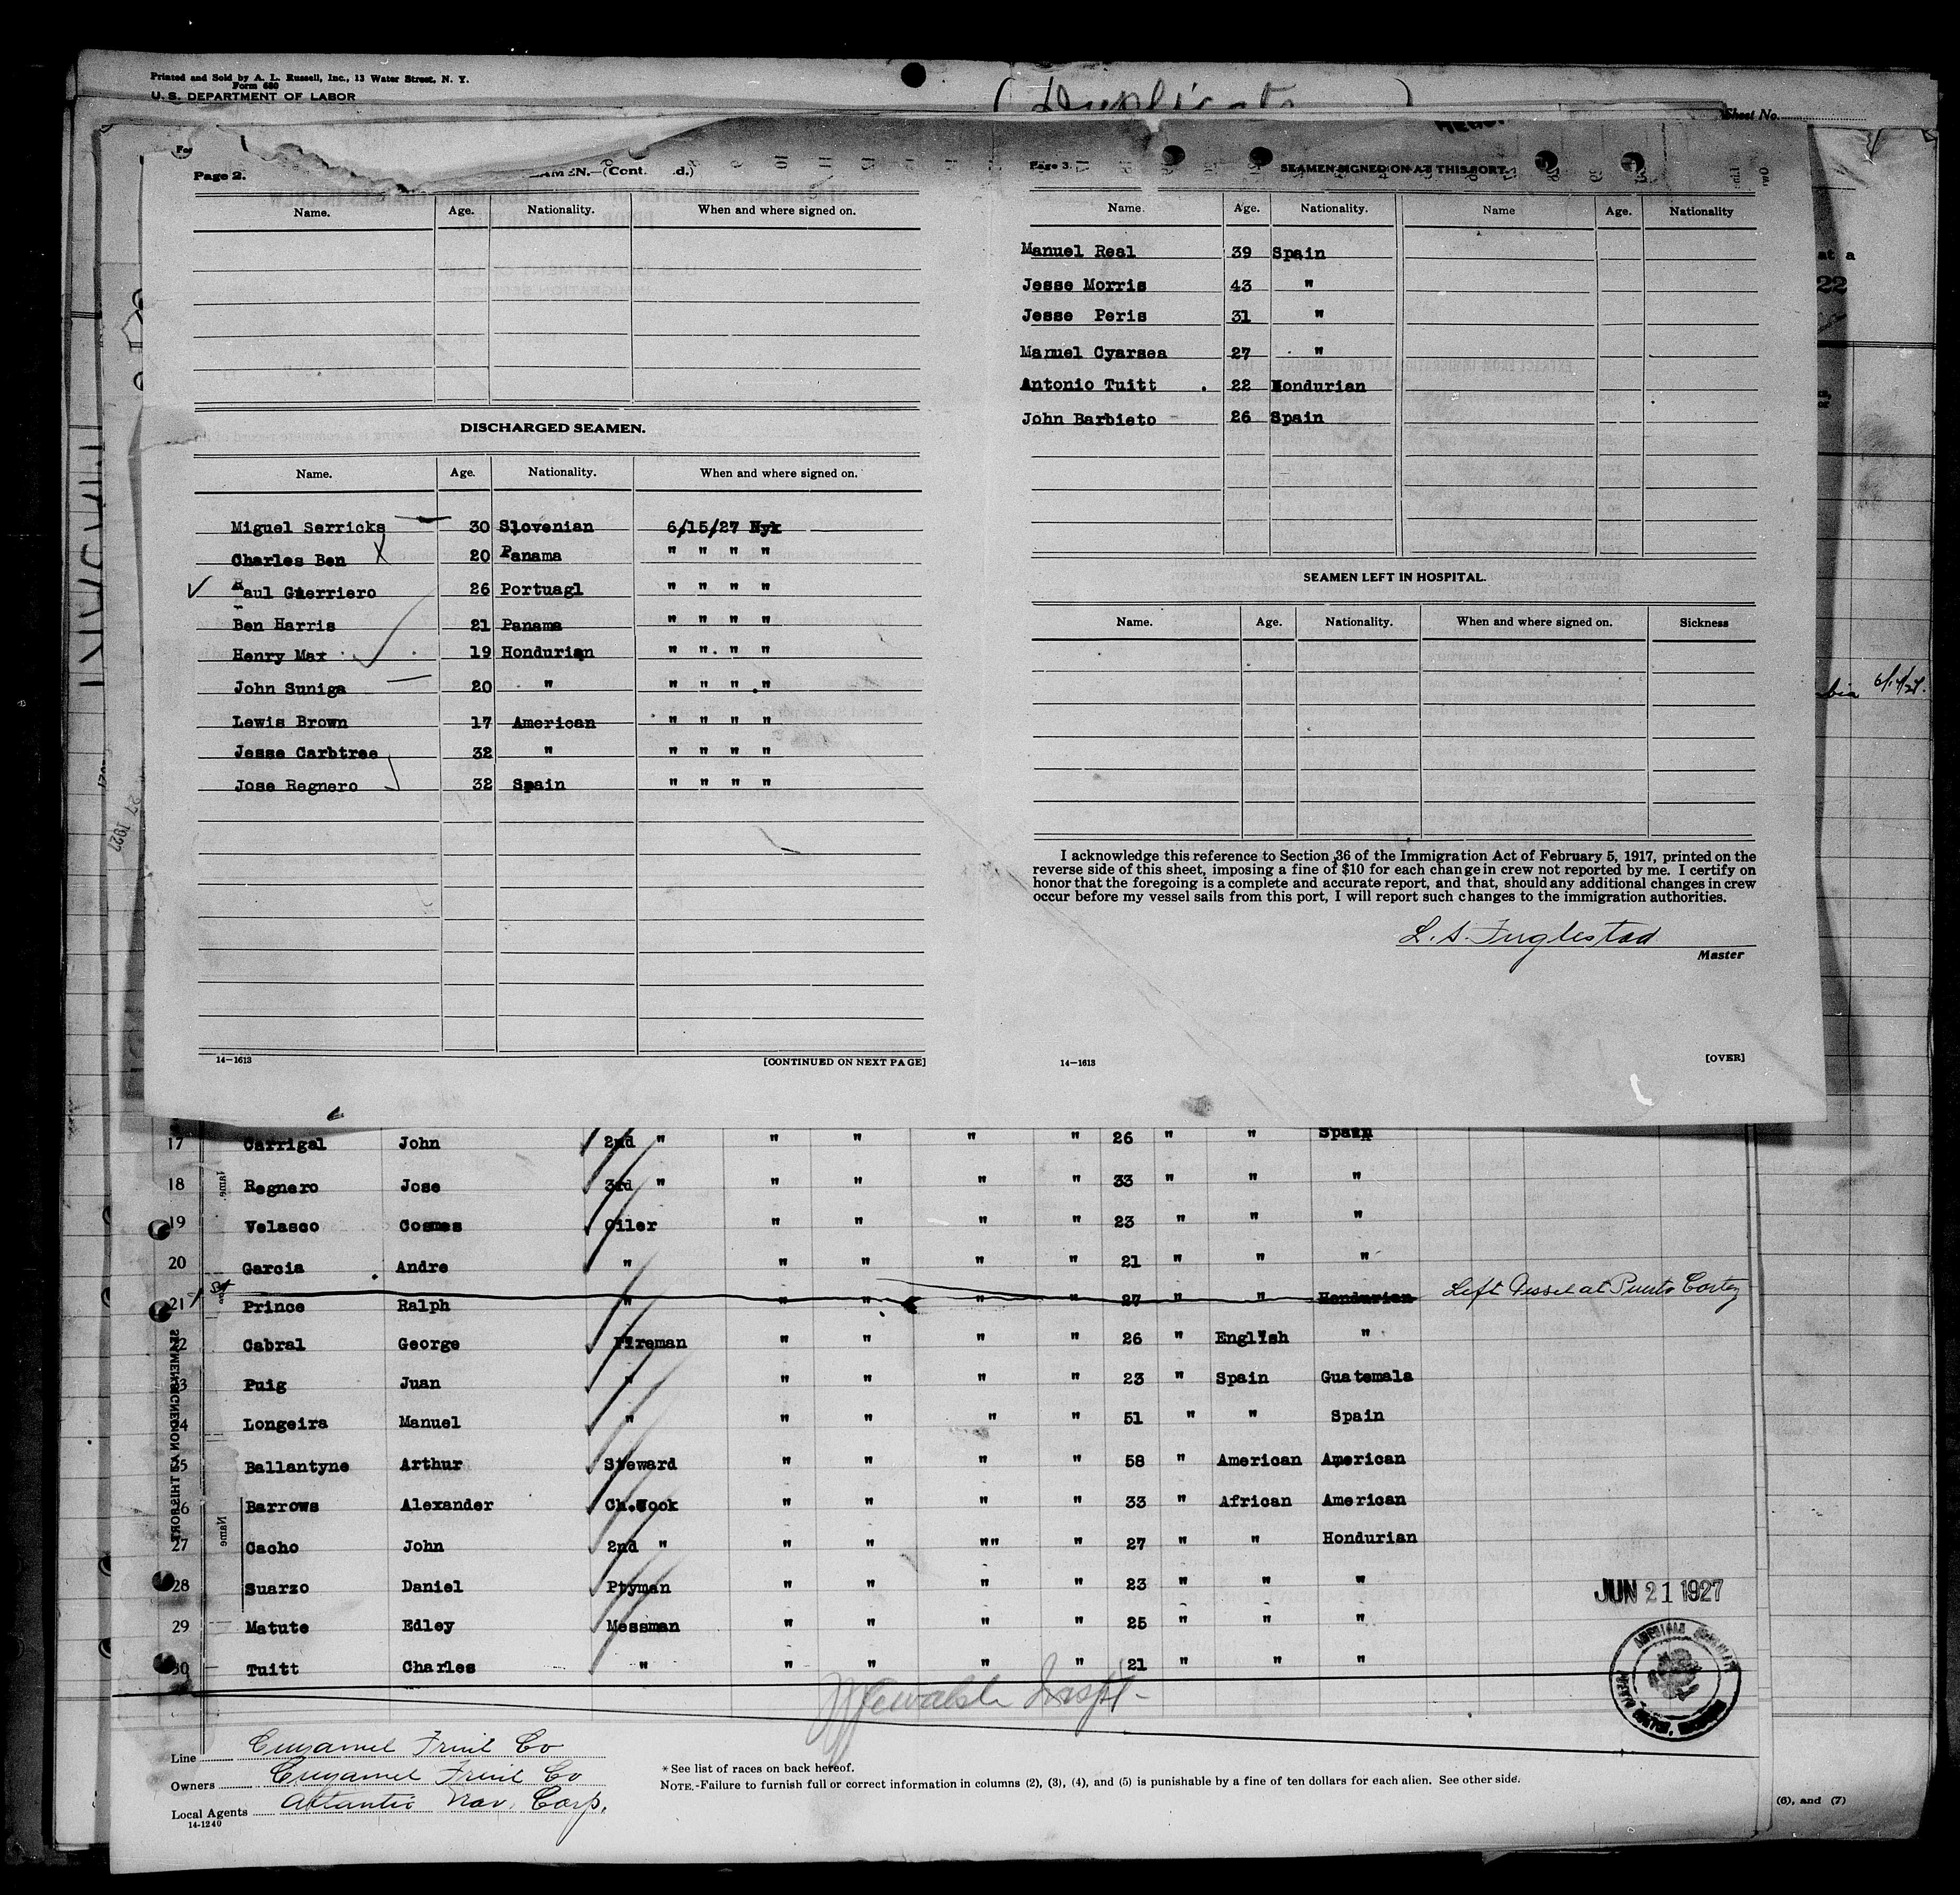 Printed and Sold by A. L. Russell, Inc., 13 Water Street, N. Y.
Form 680
U. S. DEPARTMENT OF LABOR
( Duplicate )
Sheet No.
Page 2.
AMEN.—(Cont. d.)
Name. Age. Nationality. When and where signed on.
DISCHARGED SEAMEN.
Name. Age. Nationality. When and where signed on.
Miguel Serricks 30 Slovenian 6/15/27 Nyk
Charles Ben X 20 Panama " " " "
Raul Guerriero 26 Portuagl " " " "
Ben Harris 21 Panama " " " "
Henry Max 19 Hondurian " " " "
John Suniga 20 " " " " "
Lewis Brown 17 American " " " "
Jesse Carbtree 32 " " " " "
Jose Regnero 32 Spain " " " "
14—1613 [CONTINUED ON NEXT PAGE]
Page 3.
SEAMEN SIGNED ON AT THIS PORT.
Name. Age. Nationality. Name Age. Nationality
Manuel Real 39 Spain
Jesse Morris 43 "
Jesse Peris 31 "
Manuel Cyarsea 27 "
Antonio Tuitt 22 Hondurian
John Barbieto 26 Spain
SEAMEN LEFT IN HOSPITAL.
Name. Age. Nationality. When and where signed on. Sickness
I acknowledge this reference to Section 36 of the Immigration Act of February 5, 1917, printed on the
reverse side of this sheet, imposing a fine of $10 for each change in crew not reported by me. I certify on
honor that the foregoing is a complete and accurate report, and that, should any additional changes in crew
occur before my vessel sails from this port, I will report such changes to the immigration authorities.
L. S. Fuglestad
Master
14—1613 [OVER]
at a
22
17 Carrigal John 2nd " " " " " 26 " " Spain
18 Regnero Jose 3rd " " " " " 33 " " "
19 Velasco Cosmes Oiler " " " " 23 " " "
20 Garcia Andre " " " " " 21 " " "
21 Prince Ralph " " " " " 27 " " Hondurian Left Vessel at Puerto Cortez
22 Cabral George Fireman " " " " 26 " English "
23 Puig Juan " " " " " 23 " Spain Guatemala
24 Longeira Manuel " " " " " 51 " " Spain
25 Ballantyne Arthur Steward " " " " 58 " American American
26 Barrows Alexander Ch.Cook " " " " 33 " African American
27 Cacho John 2nd " " " "" " 27 " " Hondurian
28 Suarzo Daniel Ptyman " " " " 23 " " "
29 Matute Edley Messman " " " " 25 " " "
30 Tuitt Charles " " " " " 21 " " "
JUN 21 1927
Line Cuyamel Fruit Co
Owners Cuyamel Fruit Co
Local Agents Atlantic Nav. Corp.
14-1240
* See list of races on back hereof.
NOTE.-Failure to furnish full or correct information in columns (2), (3), (4), and (5) is punishable by a fine of ten dollars for each alien. See other side.
(6), and (7)